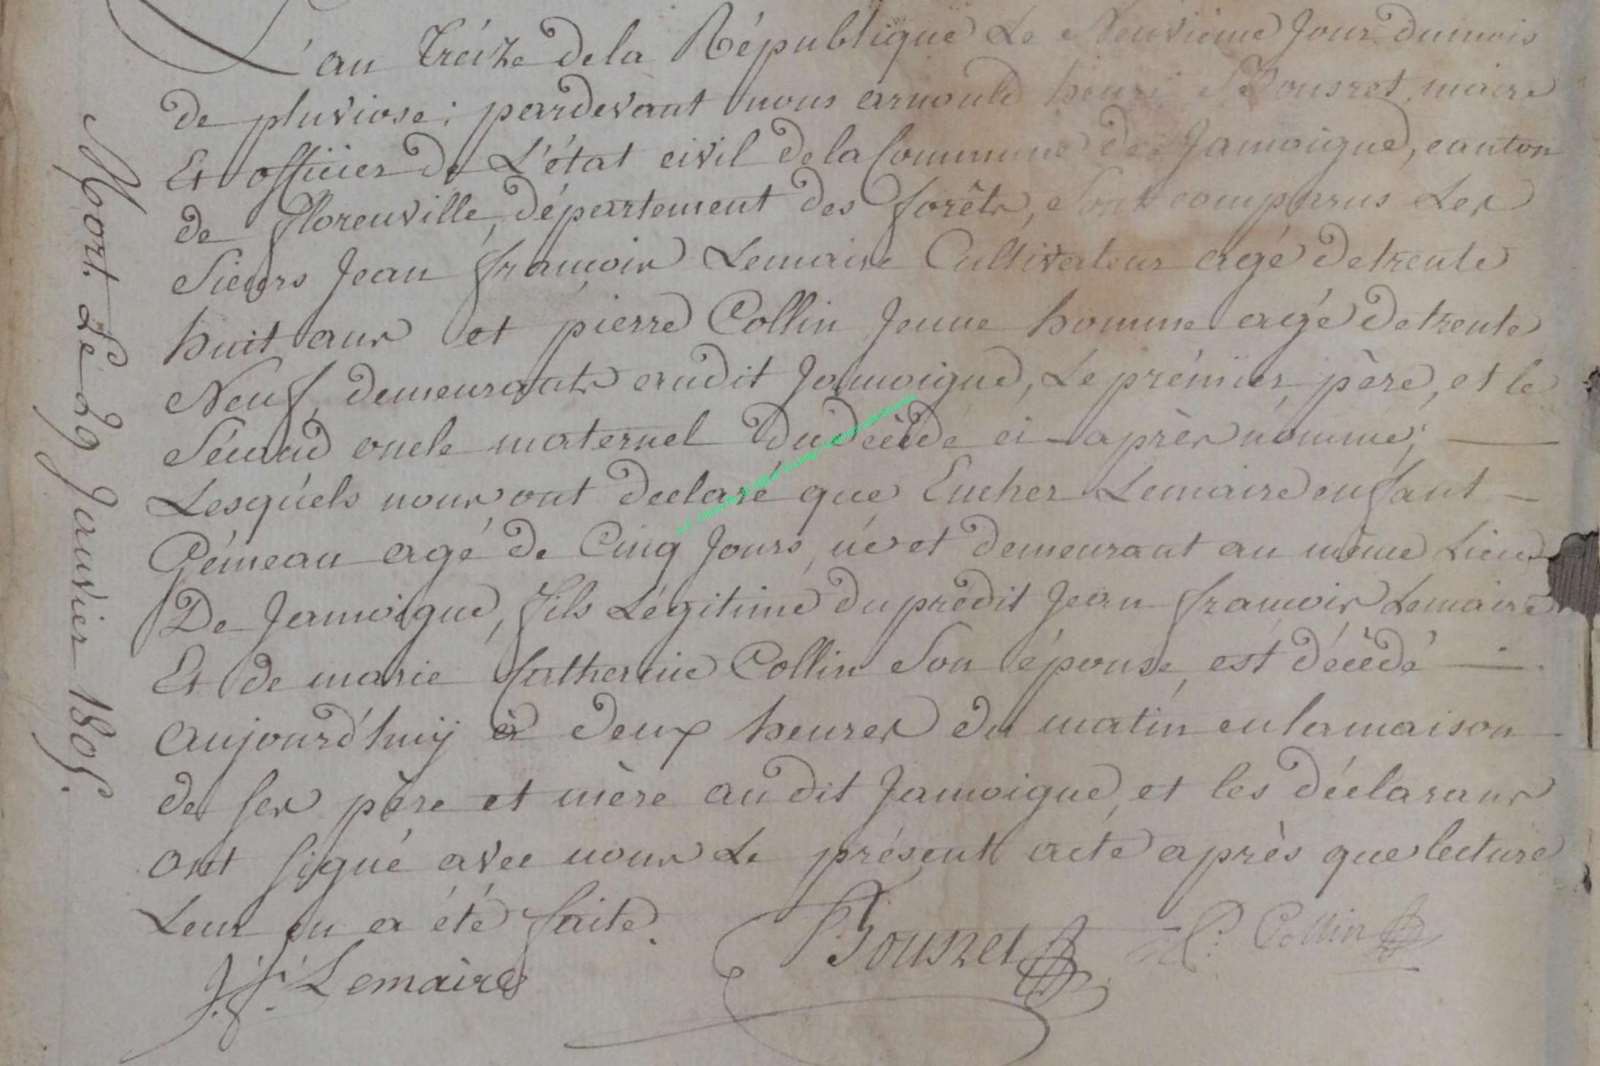 L'an treize de la République Le Neuvieme Jour du mois
de pluviose; pardevant nous arnould henri Bousret, maire
Et officier de L'état civil de la Commune de Jamoigne, canton
de florenville, département des forêts, Sont comparus Les
Sieurs Jean françois Lemaire Cultivateur agé de trente
huit ans et pierre Collin Jeune homme agé de trente
Neuf, demeurants audit Jamoigne, Le prémier père, et le
Sécond oncle maternel du décédé ci-après nommé,
Lesquels nous ont declaré que Eucher Lemaire enfant
Gémeau agé de Cinq Jours, né et demeurant au même Lieu
De Jamoigne, fils Légitime du prédit Jean françois Lemaire
Et de marie Catherine Collin Son épouse, est décédé
aujourd'huÿ à deux heures du matin en la maison
de ses père et mère au dit Jamoigne, et les déclarans
ont signé avec nous Le présent acte après que lecture
Leur en a été faite.
J. f. Lemaire
Bousret
P. Collin
Mort Le 29 Janvier 1805.